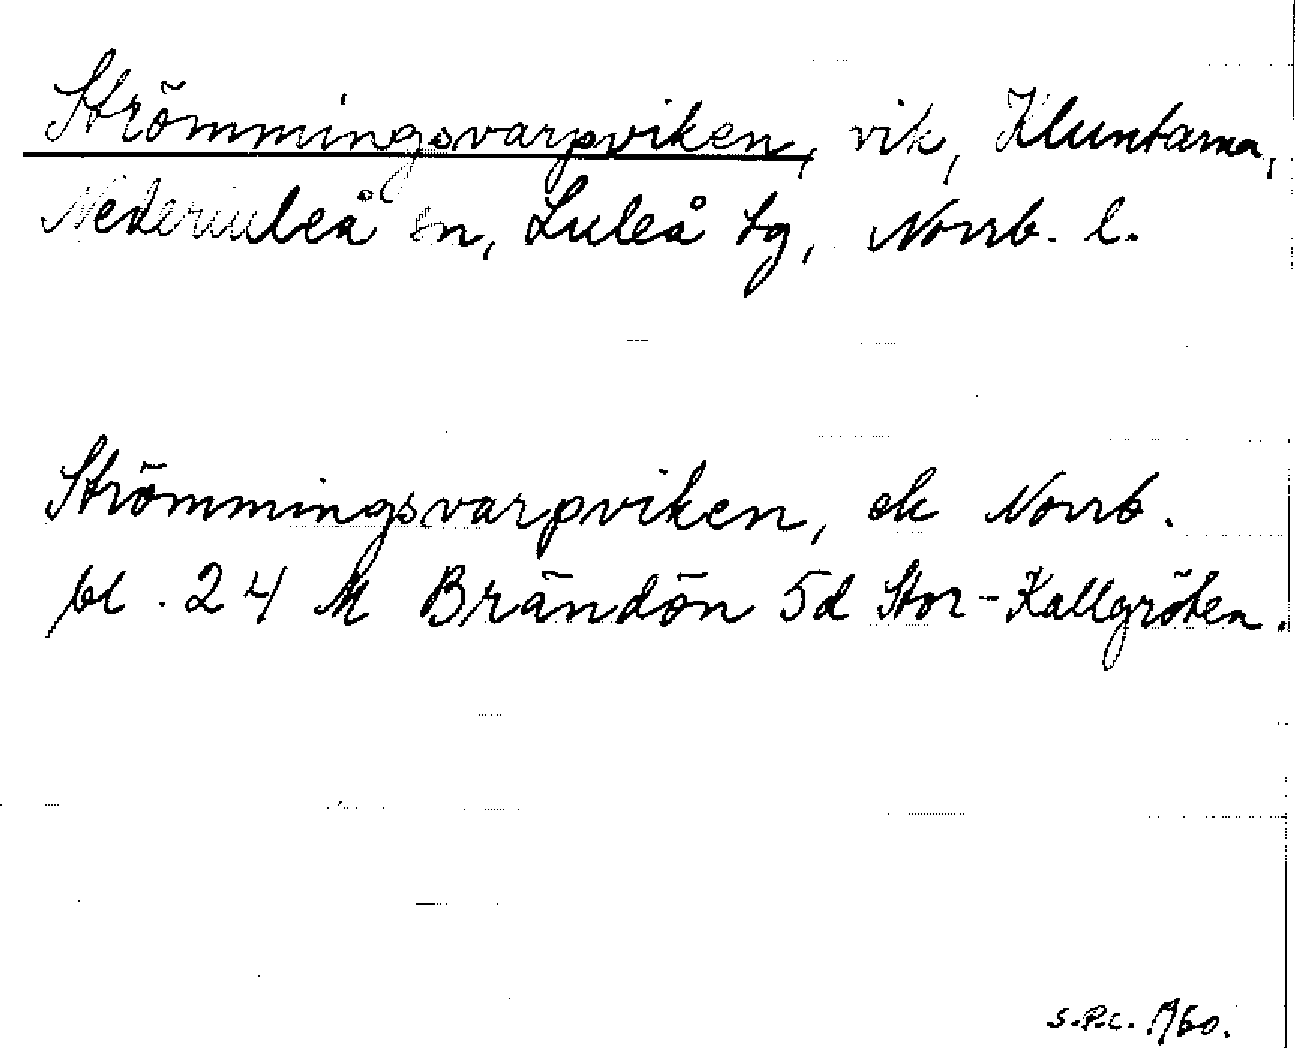 Strömmingsvarpviken, vik, Kluntarna,
Nederluleå sn, Luleå tg, Norrb. l.
Strömmingsvarpviken, ek Norrb.
bl. 24 M Brändön 5d Stor-Kallgröten.
S.P.C. 1960.